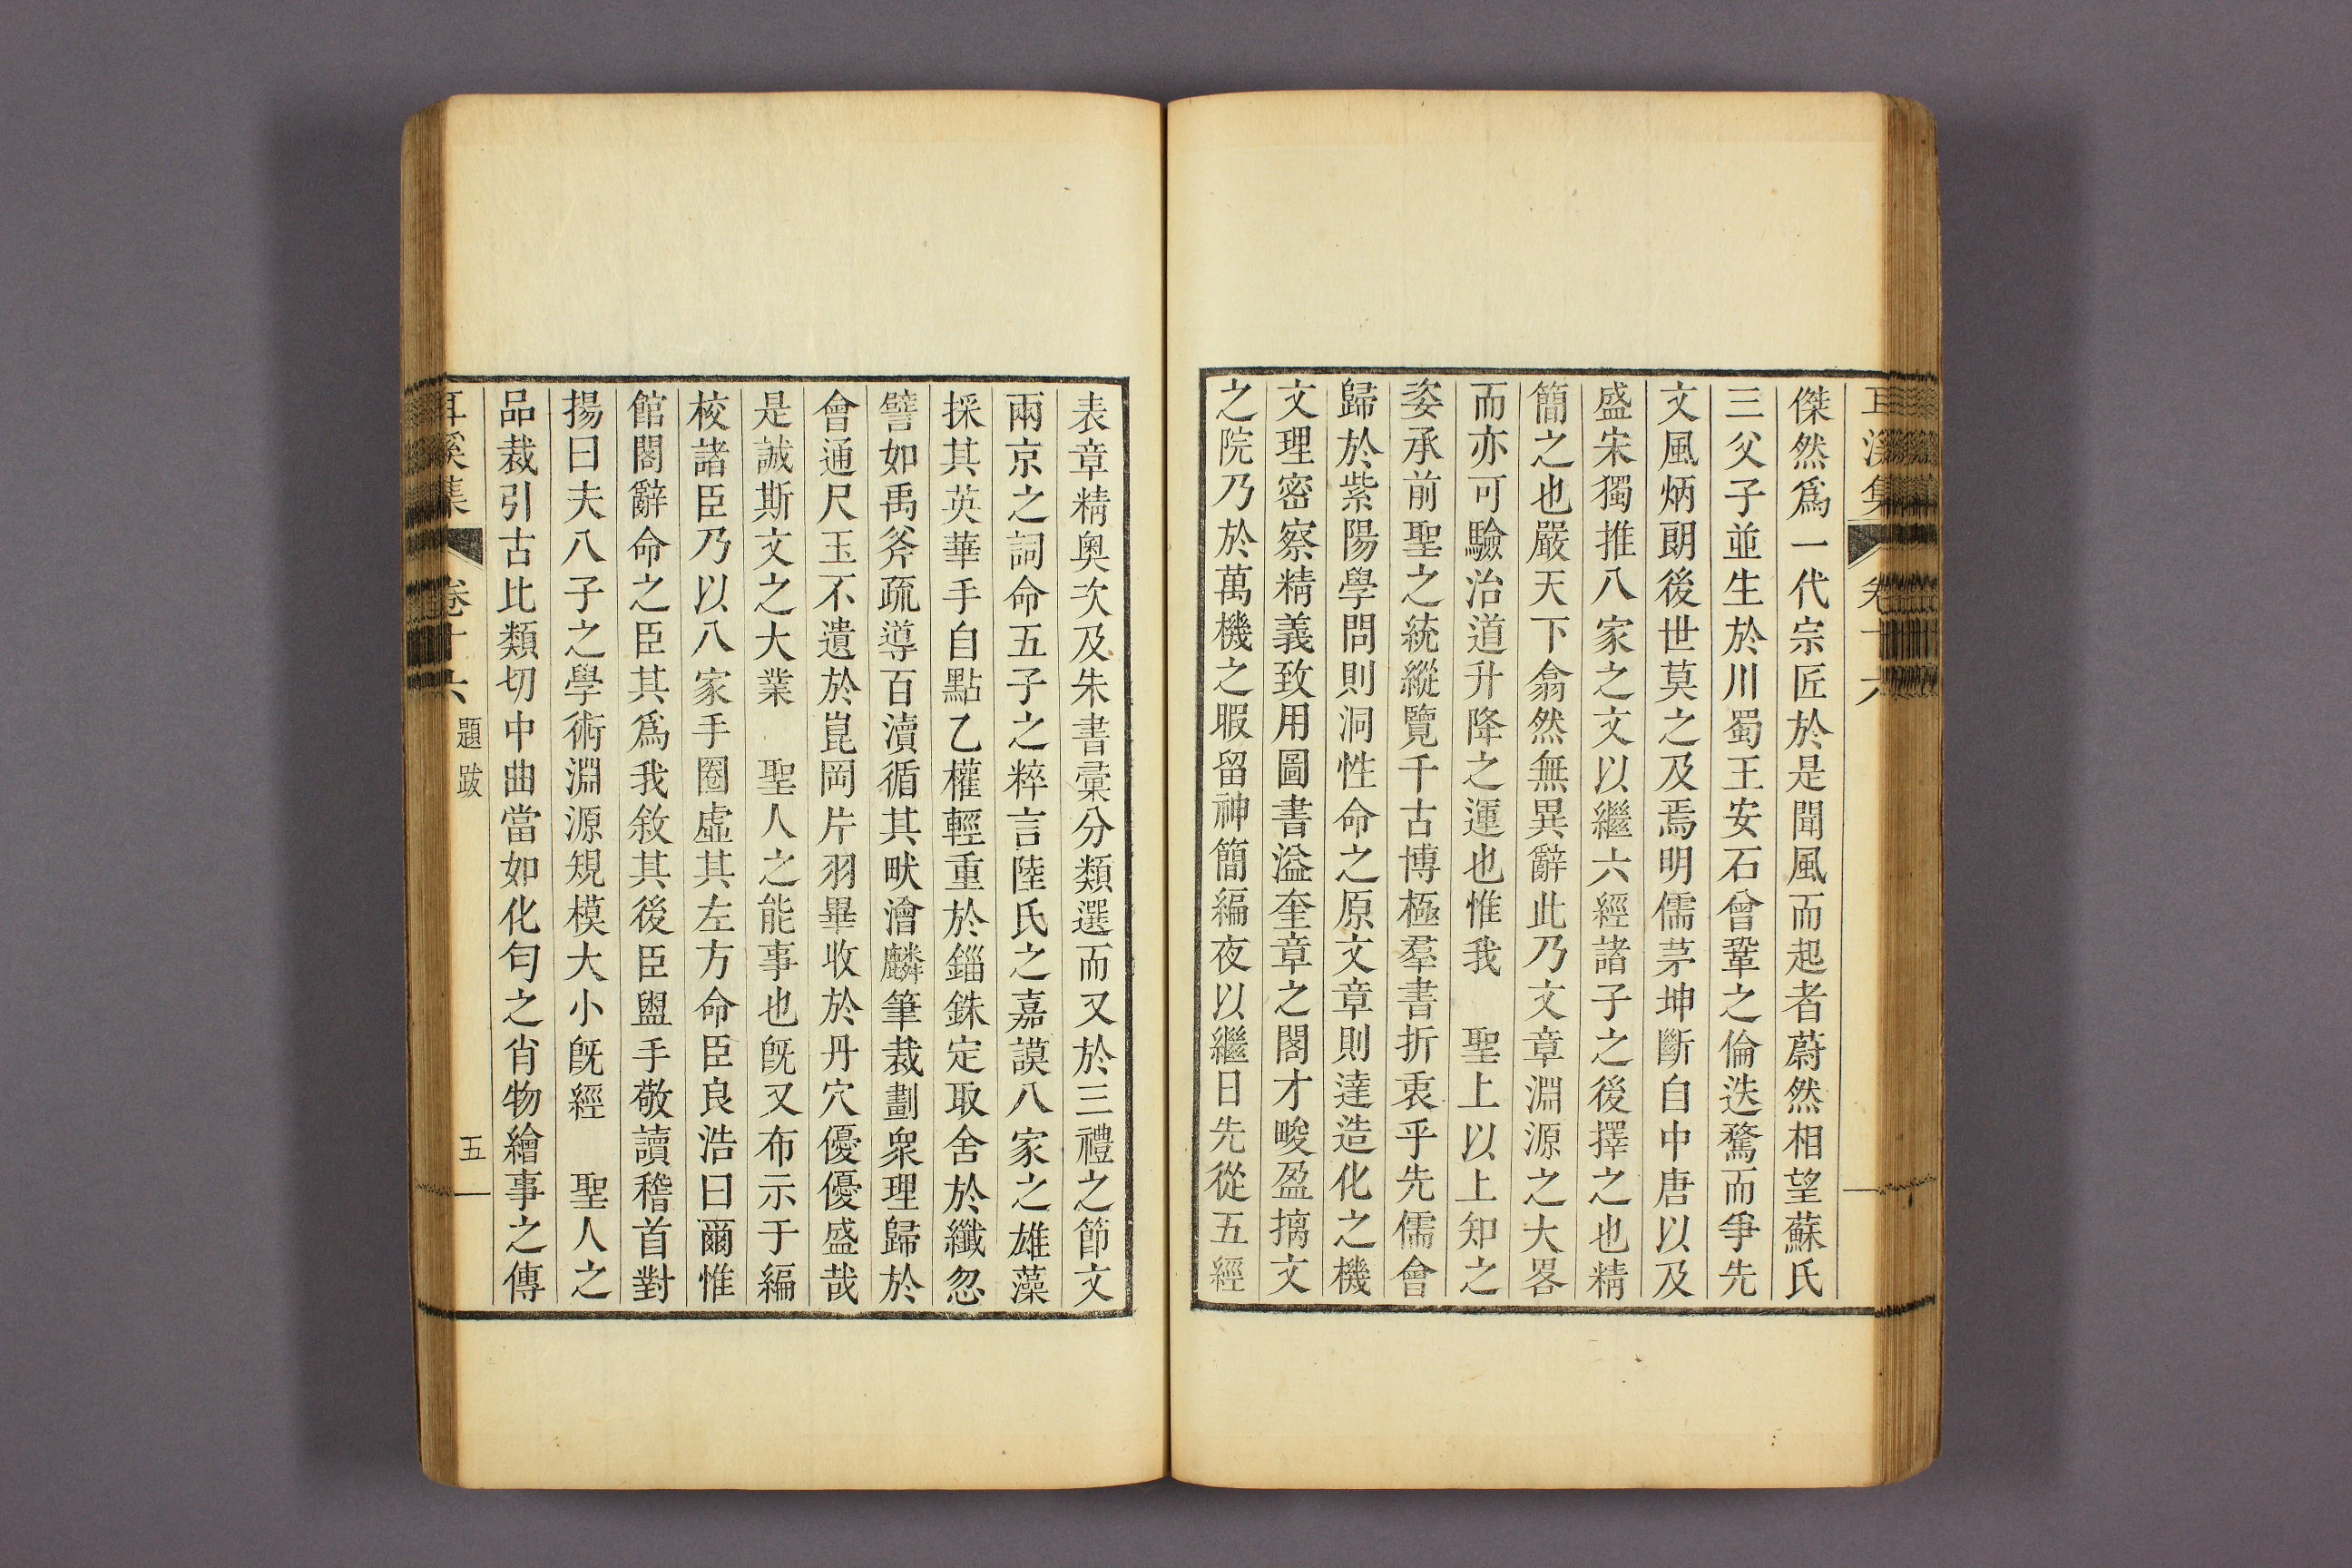 耳溪集 卷十六
傑然爲一代宗匠於是聞風而起者蔚然相望蘇氏
三父子並生於川蜀王安石曾鞏之倫迭騖而爭先
文風炳朗後世莫之及焉明儒茅坤斷自中唐以及
盛宋獨推八家之文以繼六經諸子之後擇之也精
簡之也嚴天下翕然無異辭此乃文章淵源之大畧
而亦可驗治道升降之運也惟我 聖上以上知之
姿承前聖之統縱覽千古博極羣書折衷乎先儒會
歸於紫陽學問則洞性命之原文章則達造化之機
文理密察精義致用圖書溢奎章之閣才畯盈摛文
之院乃於萬機之暇留神簡編夜以繼日先從五經
表章精奧次及朱書彙分類選而又於三禮之節文
兩京之詞命五子之粹言陸氏之嘉謨八家之雄藻
採其英華手自點乙權輕重於錙銖定取舍於纖忽
譬如禹斧疏導百瀆循其畎澮麟筆裁劃衆理歸於
會通尺玉不遺於崑岡片羽畢收於丹穴優優盛哉
是誠斯文之大業 聖人之能事也旣又布示于編
校諸臣乃以八家手圈虛其左方命臣良浩曰爾惟
館閣辭命之臣其爲我敘其後臣盥手敬讀稽首對
揚曰夫八子之學術淵源規模大小旣經 聖人之
品裁引古比類切中曲當如化匀之肖物繪事之傳
耳溪集 卷十六 題跋 五